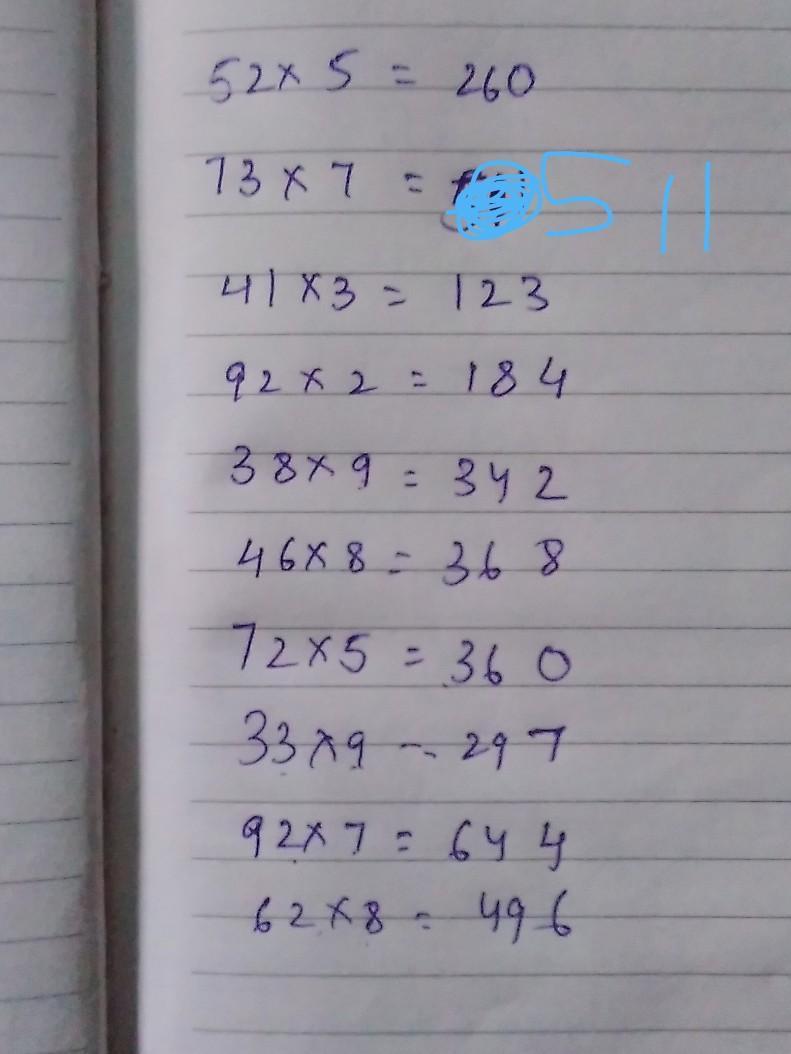 52 × 5 = 260
73 × 7 = 511
41 × 3 = 123
92 × 2 = 184
38 × 9 = 342
46 × 8 = 368
72 × 5 = 360
33 × 9 - 297
92 × 7 = 644
62 × 8 = 496